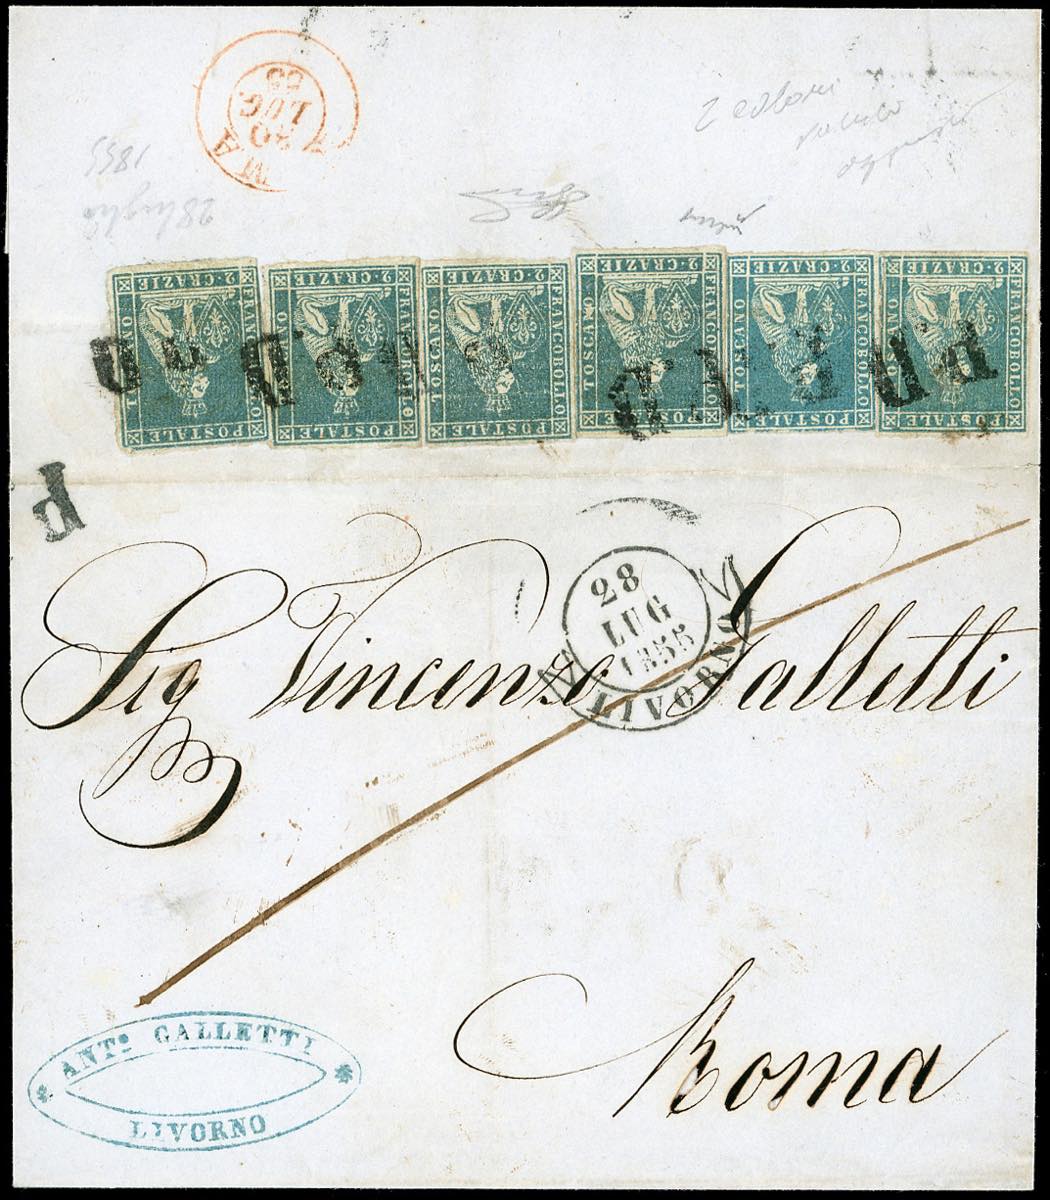 55
LUG
30
MA
1855
28 luglio
2 CRAZIE
FRANCOBOLLO
POSTALE
TOSCANO
2 CRAZIE
FRANCOBOLLO
POSTALE
TOSCANO
2 CRAZIE
FRANCOBOLLO
POSTALE
TOSCANO
2 CRAZIE
FRANCOBOLLO
POSTALE
TOSCANO
2 CRAZIE
FRANCOBOLLO
POSTALE
TOSCANO
2 CRAZIE
FRANCOBOLLO
POSTALE
TOSCANO
P
28
LUG
1855
LIVORNO
Sig Vincenzo Galletti
Roma
ANTo. GALLETTI
LIVORNO